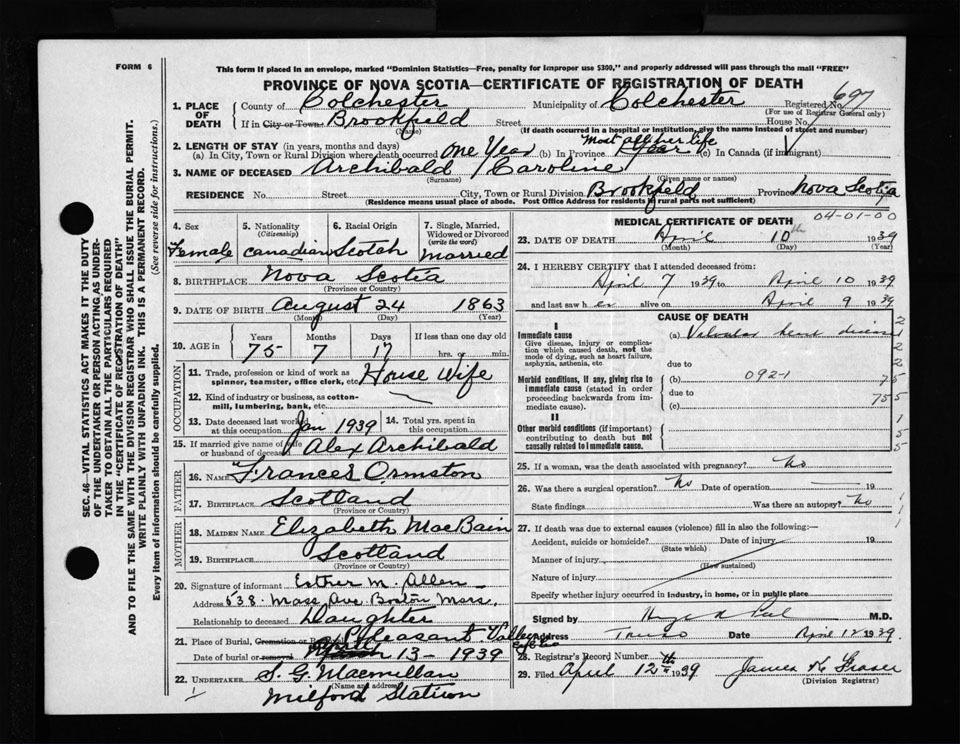 FORM 6
This form if placed in an envelope, marked "Dominion Statistics—Free, penalty for improper use $300," and properly addressed will pass through the mail "FREE"
PROVINCE OF NOVA SCOTIA—CERTIFICATE OF REGISTRATION OF DEATH
697
1. PLACE OF DEATH
County of Colchester Municipality of Colchester Registered No.
(For use of Registrar General only)
If in City or Town Brookfield Street House No.
(Name) (If death occurred in a hospital or institution, give the name instead of street and number)
2. LENGTH OF STAY (in years, months and days) Most all her life
(a) In City, Town or Rural Division where death occurred One Year (b) In Province (c) In Canada (if immigrant)
3. NAME OF DECEASED Archibald Caroline
(Surname) (Given name or names)
RESIDENCE No. Street City, Town or Rural Division Brookfield Province Nova Scotia
(Residence means usual place of abode. Post Office Address for residents in rural parts not sufficient)
SEC. 46—VITAL STATISTICS ACT MAKES IT THE DUTY
OF THE UNDERTAKER OR PERSON ACTING AS UNDER-
TAKER TO OBTAIN ALL THE PARTICULARS REQUIRED
IN THE "CERTIFICATE OF REGISTRATION OF DEATH"
AND TO FILE THE SAME WITH THE DIVISION REGISTRAR WHO SHALL ISSUE THE BURIAL PERMIT.
WRITE PLAINLY WITH UNFADING INK. THIS IS A PERMANENT RECORD.
Every item of information should be carefully supplied. (See reverse side for instructions.)
4. Sex 5. Nationality 6. Racial Origin 7. Single, Married,
(Citizenship) Widowed or Divorced
(write the word)
Female Canadian Scotch Married
8. BIRTHPLACE Nova Scotia
(Province or Country)
9. DATE OF BIRTH August 24 1863
(Month) (Day) (Year)
10. AGE in Years Months Days If less than one day old
75 7 17 hrs. or min.
OCCUPATION
11. Trade, profession or kind of work as House Wife
spinner, teamster, office clerk, etc.
12. Kind of industry or business, as cotton-
mill, lumbering, bank, etc.
13. Date deceased last worked at this occupation Jan 1939 14. Total yrs. spent in this occupation
15. If married give name of wife
or husband of deceased Alex Archibald
FATHER
16. NAME Frances Ormston
17. BIRTHPLACE Scotland
(Province or Country)
MOTHER
18. MAIDEN NAME Elizabeth MacBain
19. BIRTHPLACE Scotland
(Province or Country)
20. Signature of informant Esther M. Allen
Address 538 Mass Ave Boston Mass.
Relationship to deceased Daughter
21. Place of Burial, Cremation or Removal Pleasant Valley
Date of burial or removal April 13 - 1939
22. UNDERTAKER S. G. Macmillan
(Name and address)
Milford Station
MEDICAL CERTIFICATE OF DEATH
04-01-00
23. DATE OF DEATH April 10th 1939
(Month) (Day) (Year)
24. I HEREBY CERTIFY that I attended deceased from:
April 7 1939 to April 10 1939
and last saw her alive on April 9 1939
CAUSE OF DEATH
I
Immediate cause (a) Valvular heart disease
Give disease, injury or complica-
tion which caused death, not the
mode of dying, such as heart failure,
asphyxia, asthenia, etc. due to
Morbid conditions, if any, giving rise to (b) 092-1
immediate cause (stated in order due to
proceeding backwards from im-
mediate cause). (c)
II
Other morbid conditions (if important)
contributing to death but not
causally related to immediate cause.
2
2
2
75
75 5
1
5
5
25. If a woman, was the death associated with pregnancy? No
26. Was there a surgical operation? No Date of operation 19
State findings Was there an autopsy? No
27. If death was due to external causes (violence) fill in also the following:—
Accident, suicide or homicide? Date of injury 19
(State which)
Manner of injury
(How sustained)
Nature of injury
Specify whether injury occurred in industry, in home, or in public place
Signed by M.D.
Address Truro Date April 12 1939.
28. Registrar's Record Number
29. Filed April 12th 1939 James K Fraser
(Division Registrar)